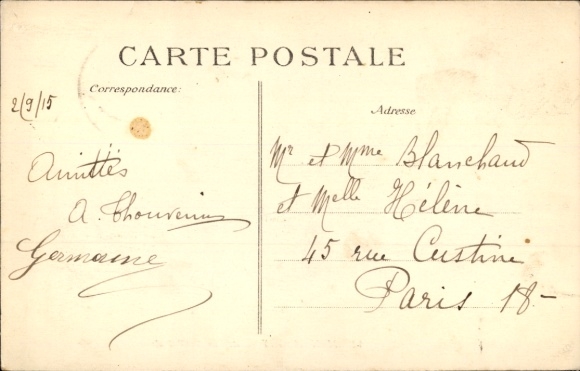 CARTE POSTALE
Correspondance:
2/9/15
Amitiés
A. Thouvenin
Germaine
Adresse
Mr et Mme Blanchaud
et Melle Hélène
45 rue Custine
Paris 18-